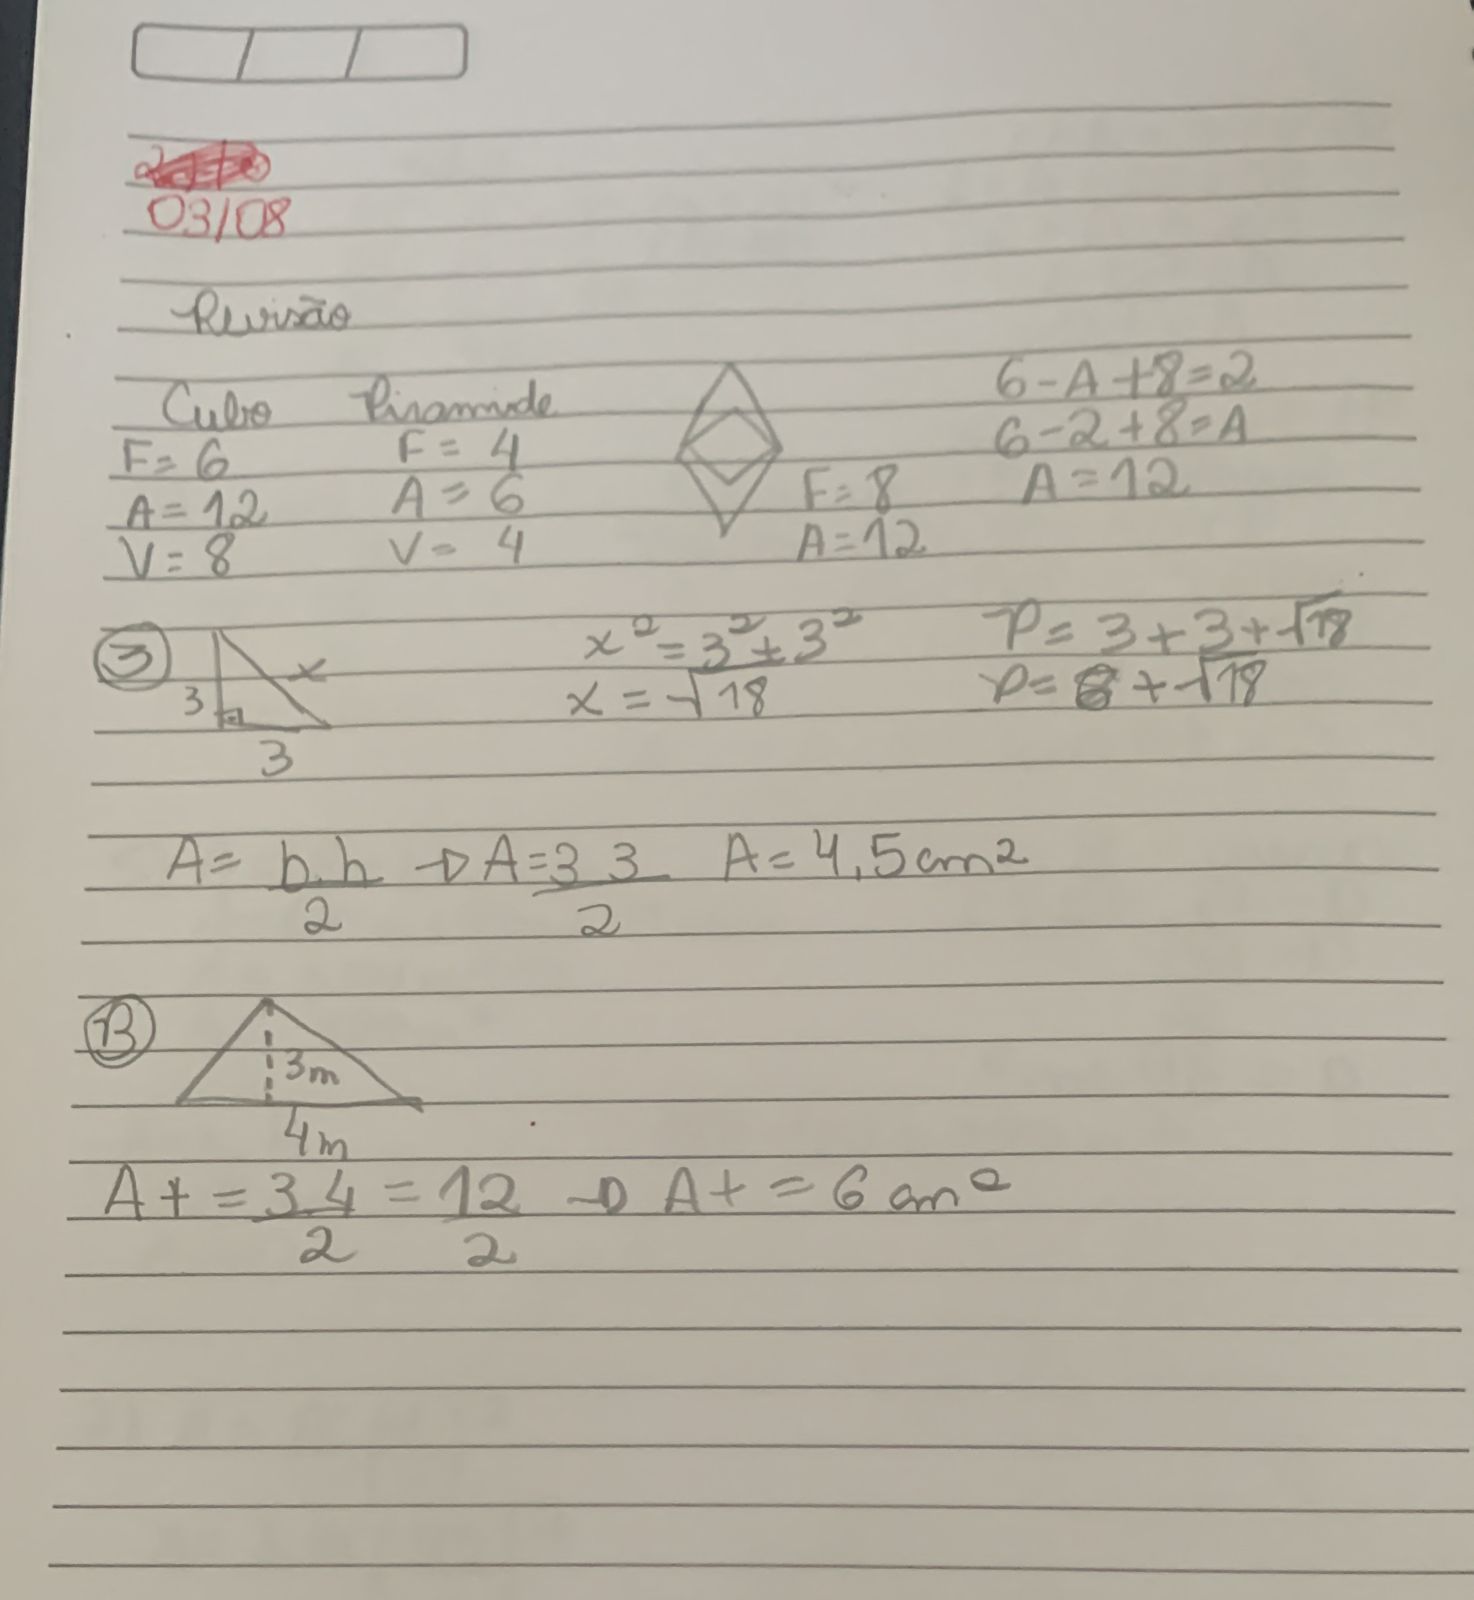 03/08
Revisão
Cubo Piramide
F=6 F=4
A=12 A=6
V=8 V=4
F=8
A=12
6-A+8=2
6-2+8=A
A=12
3
x
3
3
x²=3²+3²
x=√18
P=3+3+√18
P=6+√18
A=b.h/2 → A=3 3/2 A=4,5cm²
B
3m
4m
At=3.4/2=12/2 → At=6cm²